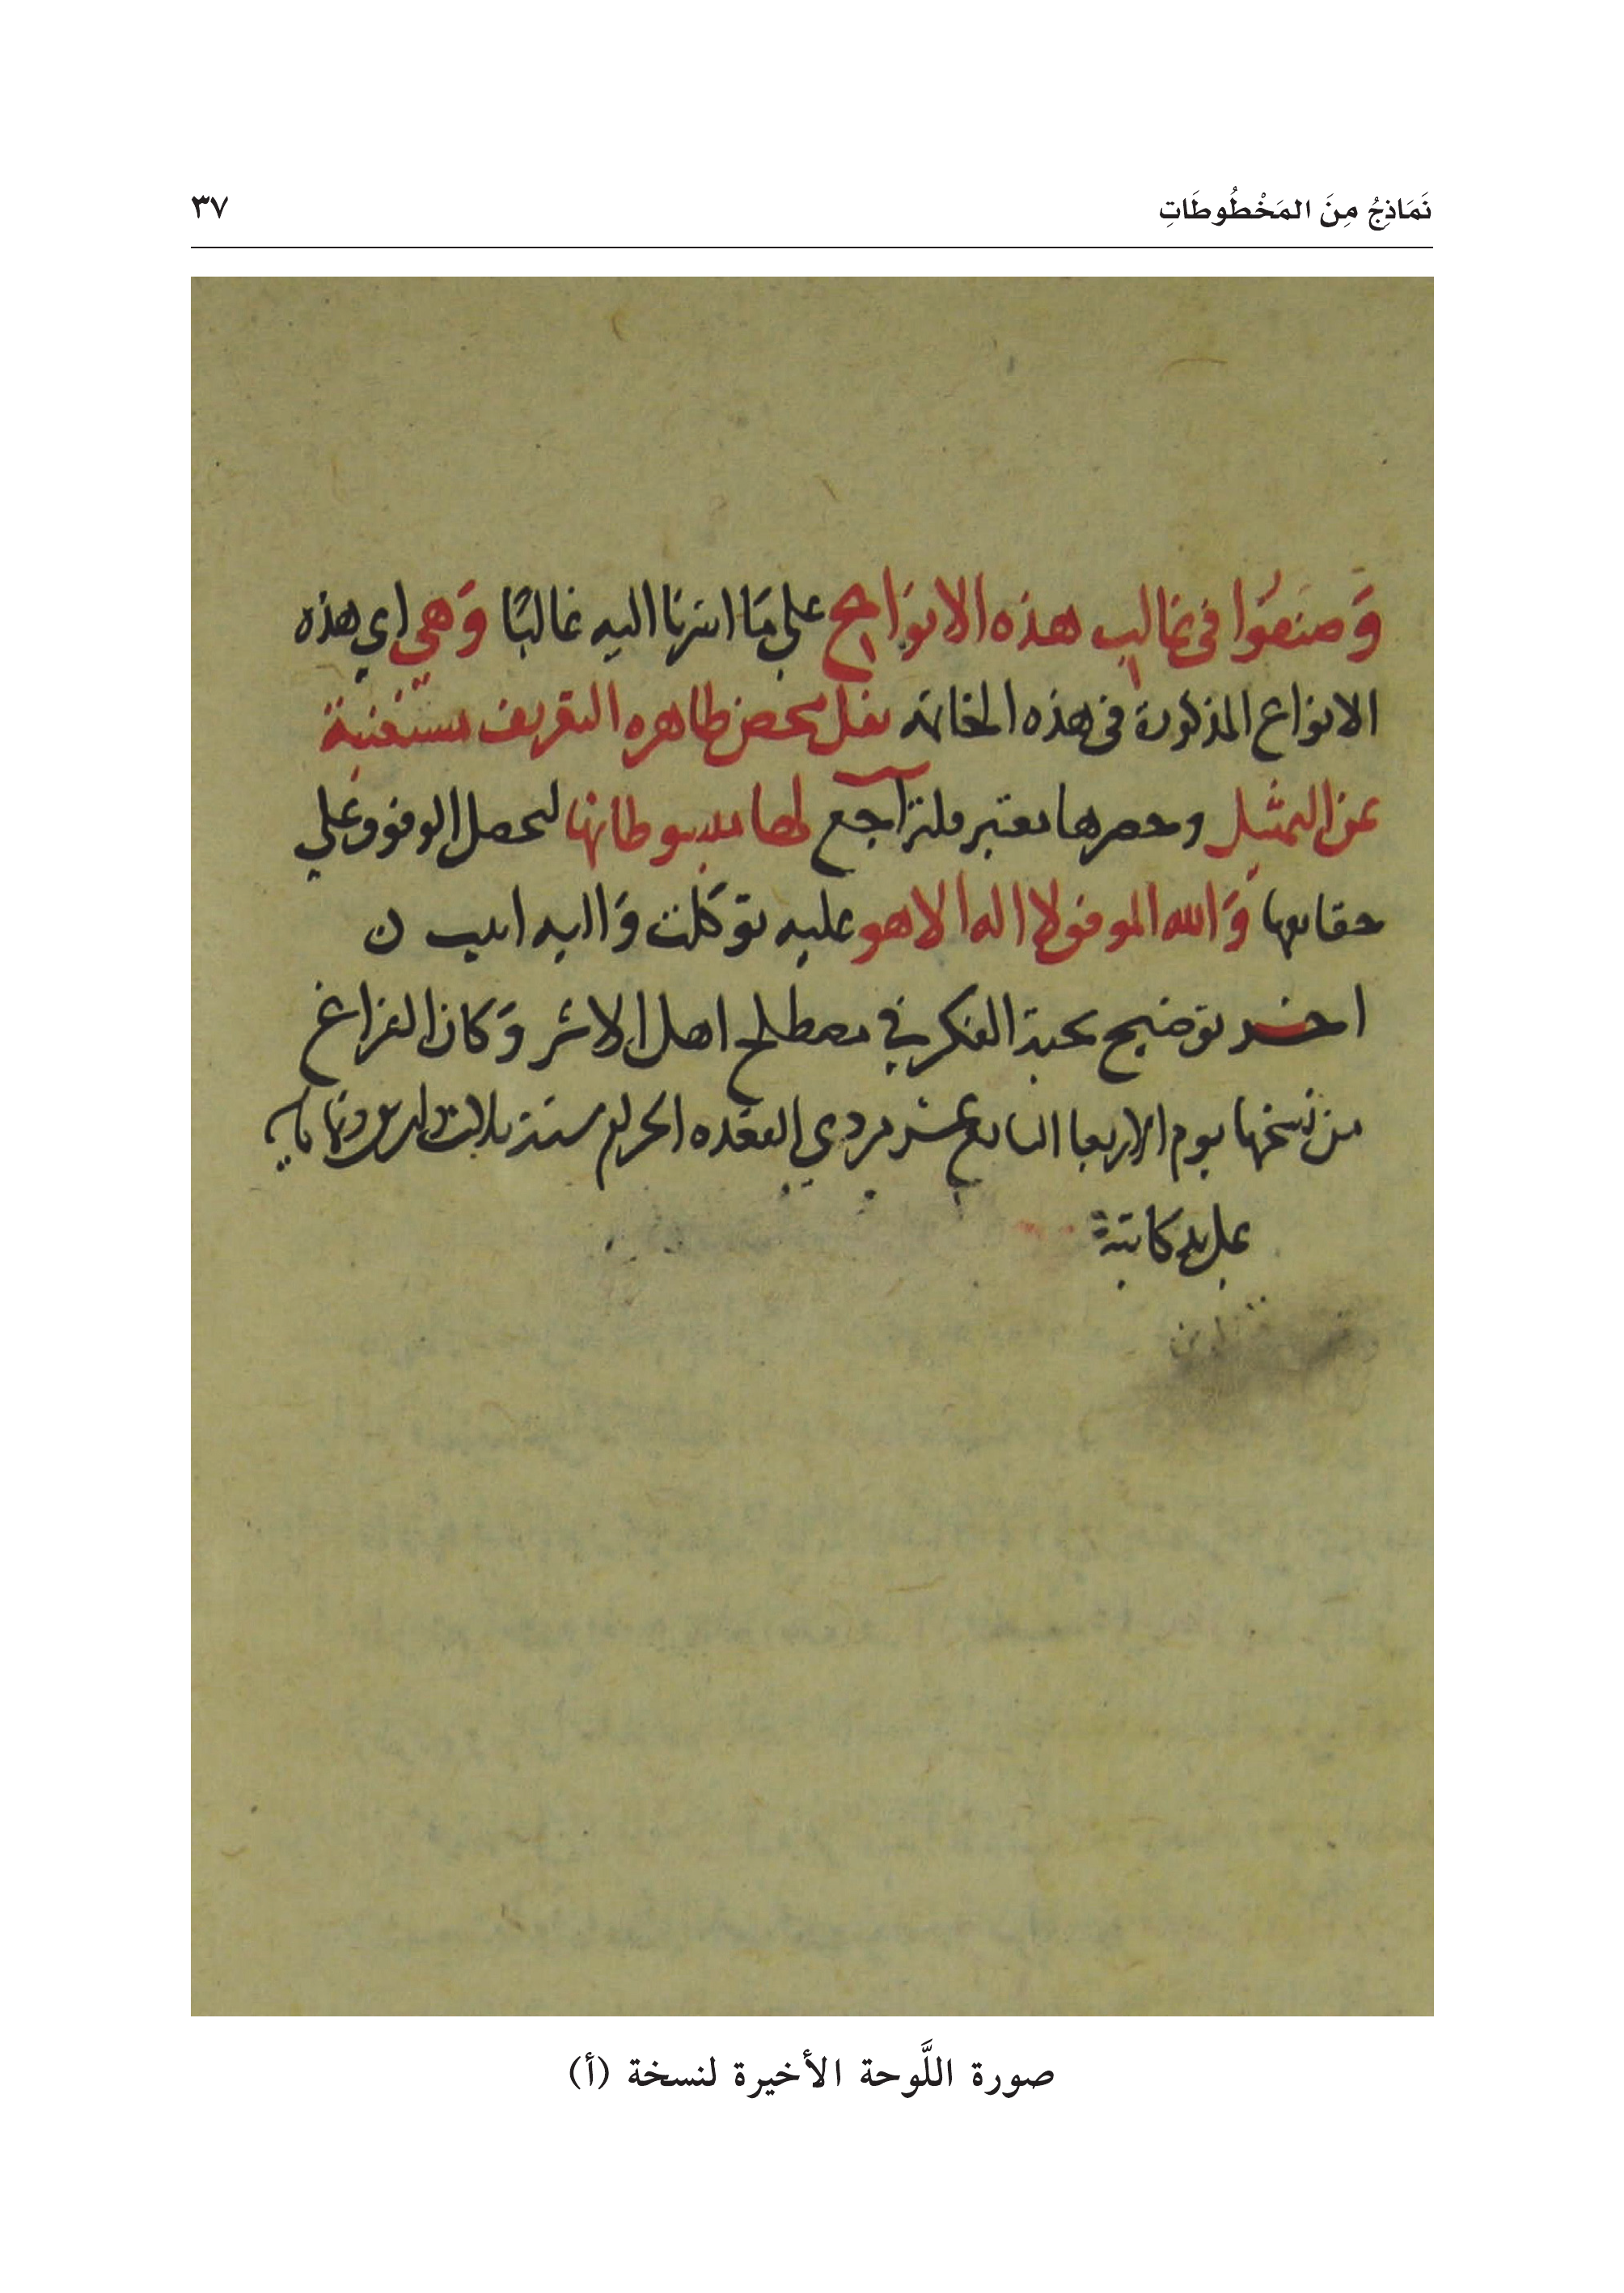 نَمَاذِجُ مِنَ المَخْطُوطَاتِ
٣٧
وَصنفوا في غالب هذه الانواع على مَا اشرنا اليه غالبًا وَهي اي هذه
الانواع المذكورة في هذه الخاتمة نقل محض ظاهره التعريف مستغنية
عن التمثيل وحصرها معتبر فلتراجع لها مبسوطاتها ليحصل الوقوف على
حقايقها وَالله الموفق لا اله الا هو عليه توكلت وَاليه انيب
اخر توضيح نخبة الفكر في مصطلح اهل الاثر وَكان الفراغ
من نسخها يوم الاربعا السابع عشر من ذي القعده الحرام سنة ثلاث
على يد كاتبه
صورة اللَّوحة الأخيرة لنسخة (أ)